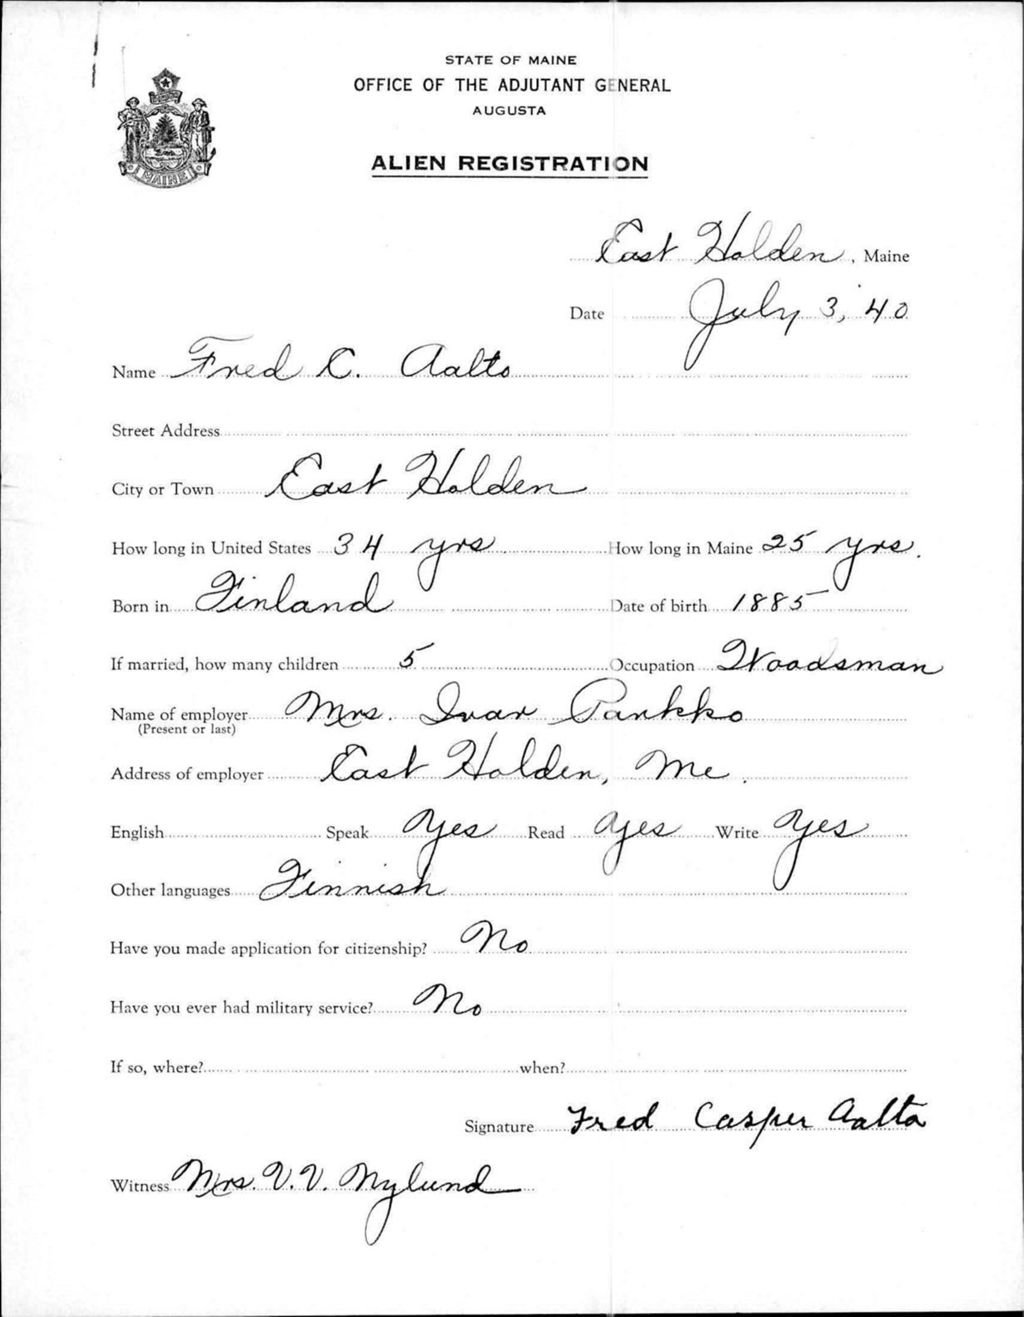 STATE OF MAINE
OFFICE OF THE ADJUTANT GENERAL
AUGUSTA
ALIEN REGISTRATION
MAINE
East Holden, Maine
Date July 3, 40
Name Fred C. Aalto
Street Address
City or Town East Holden
How long in United States 34 yrs How long in Maine 25 yrs.
Born in Finland Date of birth 1885
If married, how many children 5 Occupation Woodsman
Name of employer Mrs. Ivar Pankko
(Present or last)
Address of employer East Holden, Me.
English Speak Yes Read Yes Write Yes
Other languages Finnish
Have you made application for citizenship? No
Have you ever had military service? No
If so, where? when?
Signature Fred Casper Aalto
Witness Mrs. V. V. Nylund